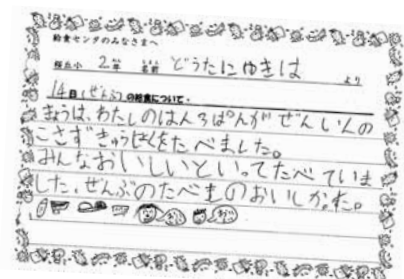 給食センタのみなさまへ
桜丘小 2年 名前 どうたにゆきは より
14日(ぜんぶ)の給食について。
きょうは、わたしのはんろぱんがぜんいんの
こさずきゅうしょくをたべました。
みんなおいしいといってたべていま
した。ぜんぶのたべものおいしかった。